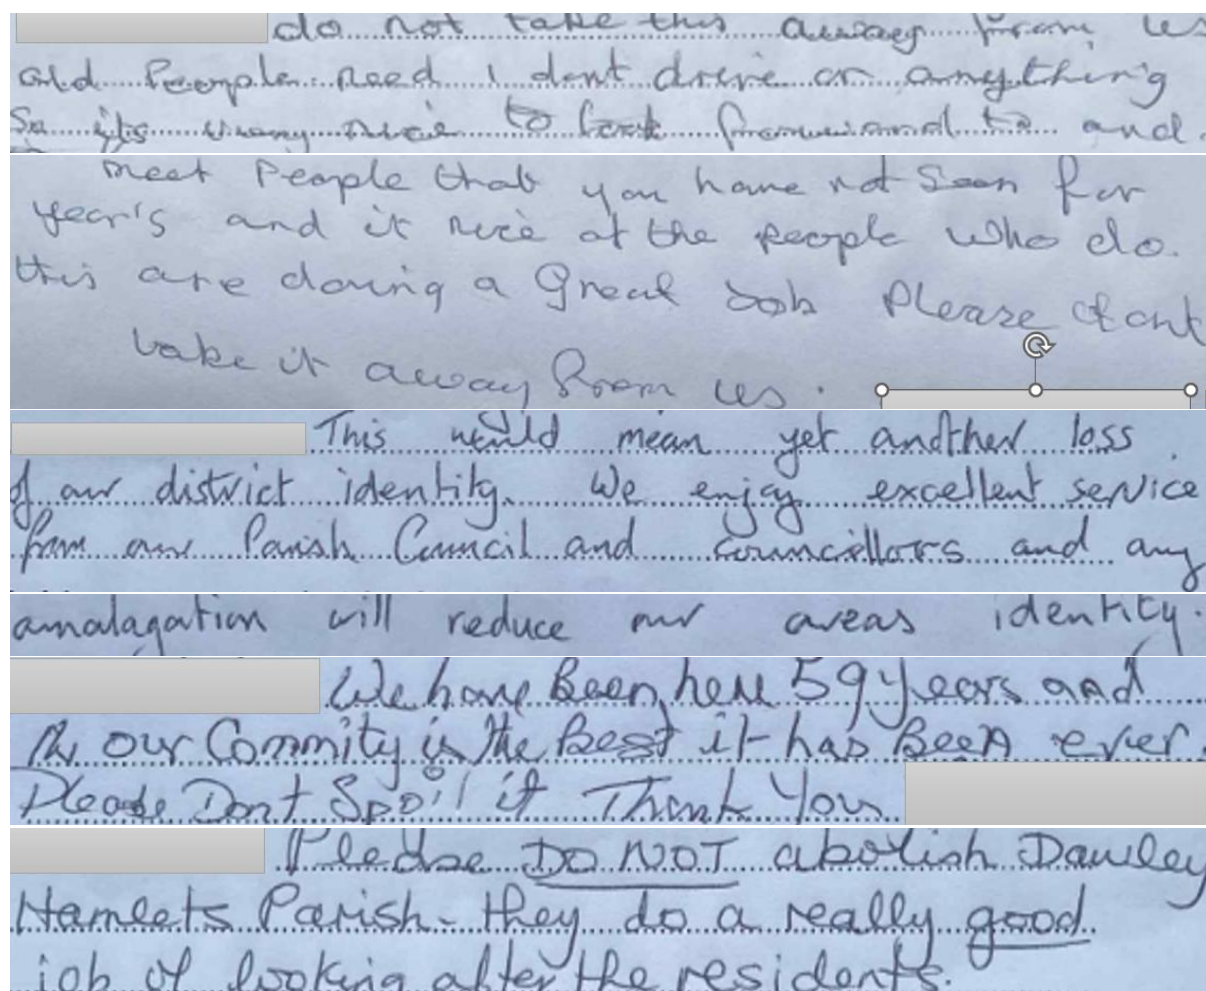 do not take this away from us
old People need I dont drive or anything
So its very nice to look forward to and
meet People that you have not Seen for
year's and it nice at the people who do.
this are doing a Great Job Please dont
take it away from us.
This would mean yet another loss
of our district identity. We enjoy excellent service
from our Parish Council and councillors and any
amalagation will reduce our areas identity.
We have Been here 59 years and
our Commity is the Best it has Been ever.
Please Dont Spoil it Thank You
Please DO NOT abolish Dawley
Hamlets Parish - they do a really good
job of looking after the residents.